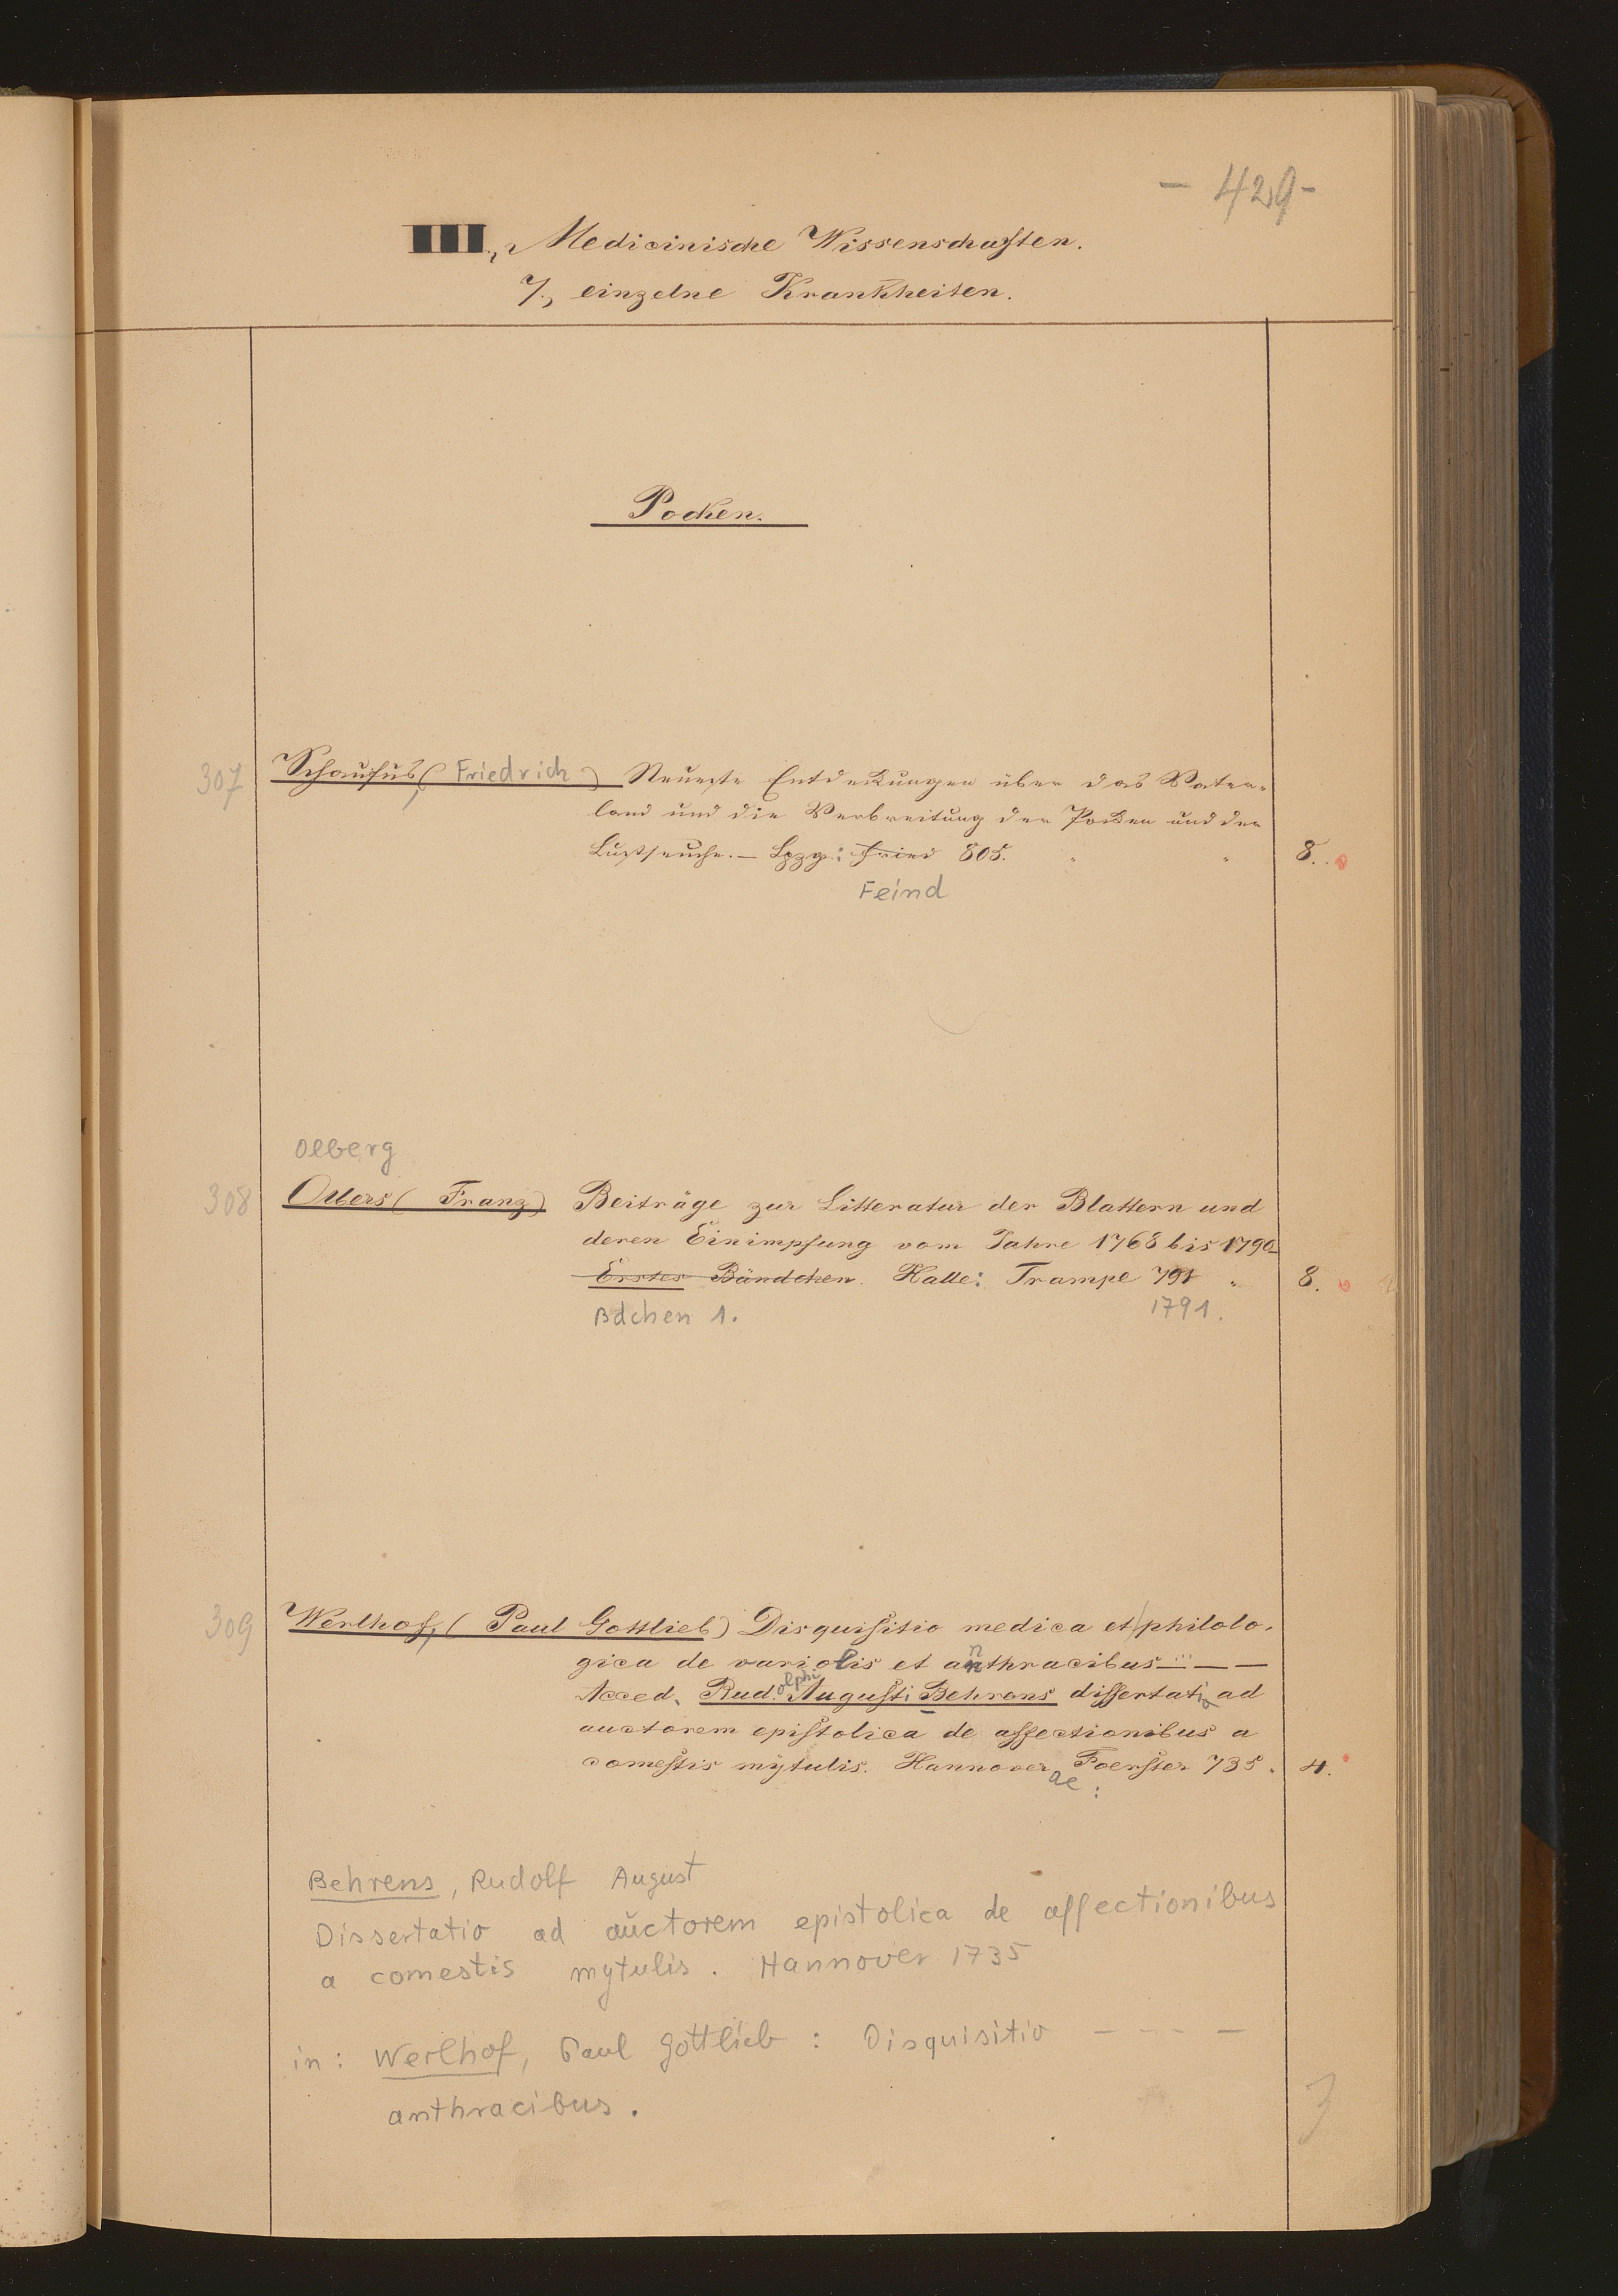 - 429 -
III., Medicinische Wissenschaften.
7., einzelne Krankheiten.
Pocken.
307 Schaufus, ( Friedrich ) Neueste Entdeckungen über das Vater-
land und die Verbreitung der Pocken und der
Lustseuche. — Lpzg: Fried 805. " " 8.
Feind
Olberg
308 Olbers ( Franz ) Beiträge zur Litteratur der Blattern und
deren Einimpfung vom Jahre 1768 bis 1790
Erstes Bändchen. Halle: Trampe 791 " 8.
Bdchen 1. 1791.
309 Werlhof, ( Paul Gottlieb ) Disquisitio medica et philolo-
gica de variolis et anthracibus — — —
Acced. Rudolphi Augusti Behrens dissertatio ad
auctorem epistolica de affectionibus a
comestis mytulis. Hannoverae: Foerster 735. 4.
Behrens, Rudolf August
Dissertatio ad auctorem epistolica de affectionibus
a comestis mytulis. Hannover 1735
in: Werlhof, Paul Gottlieb : Disquisitio - - - -
anthracibus.
3